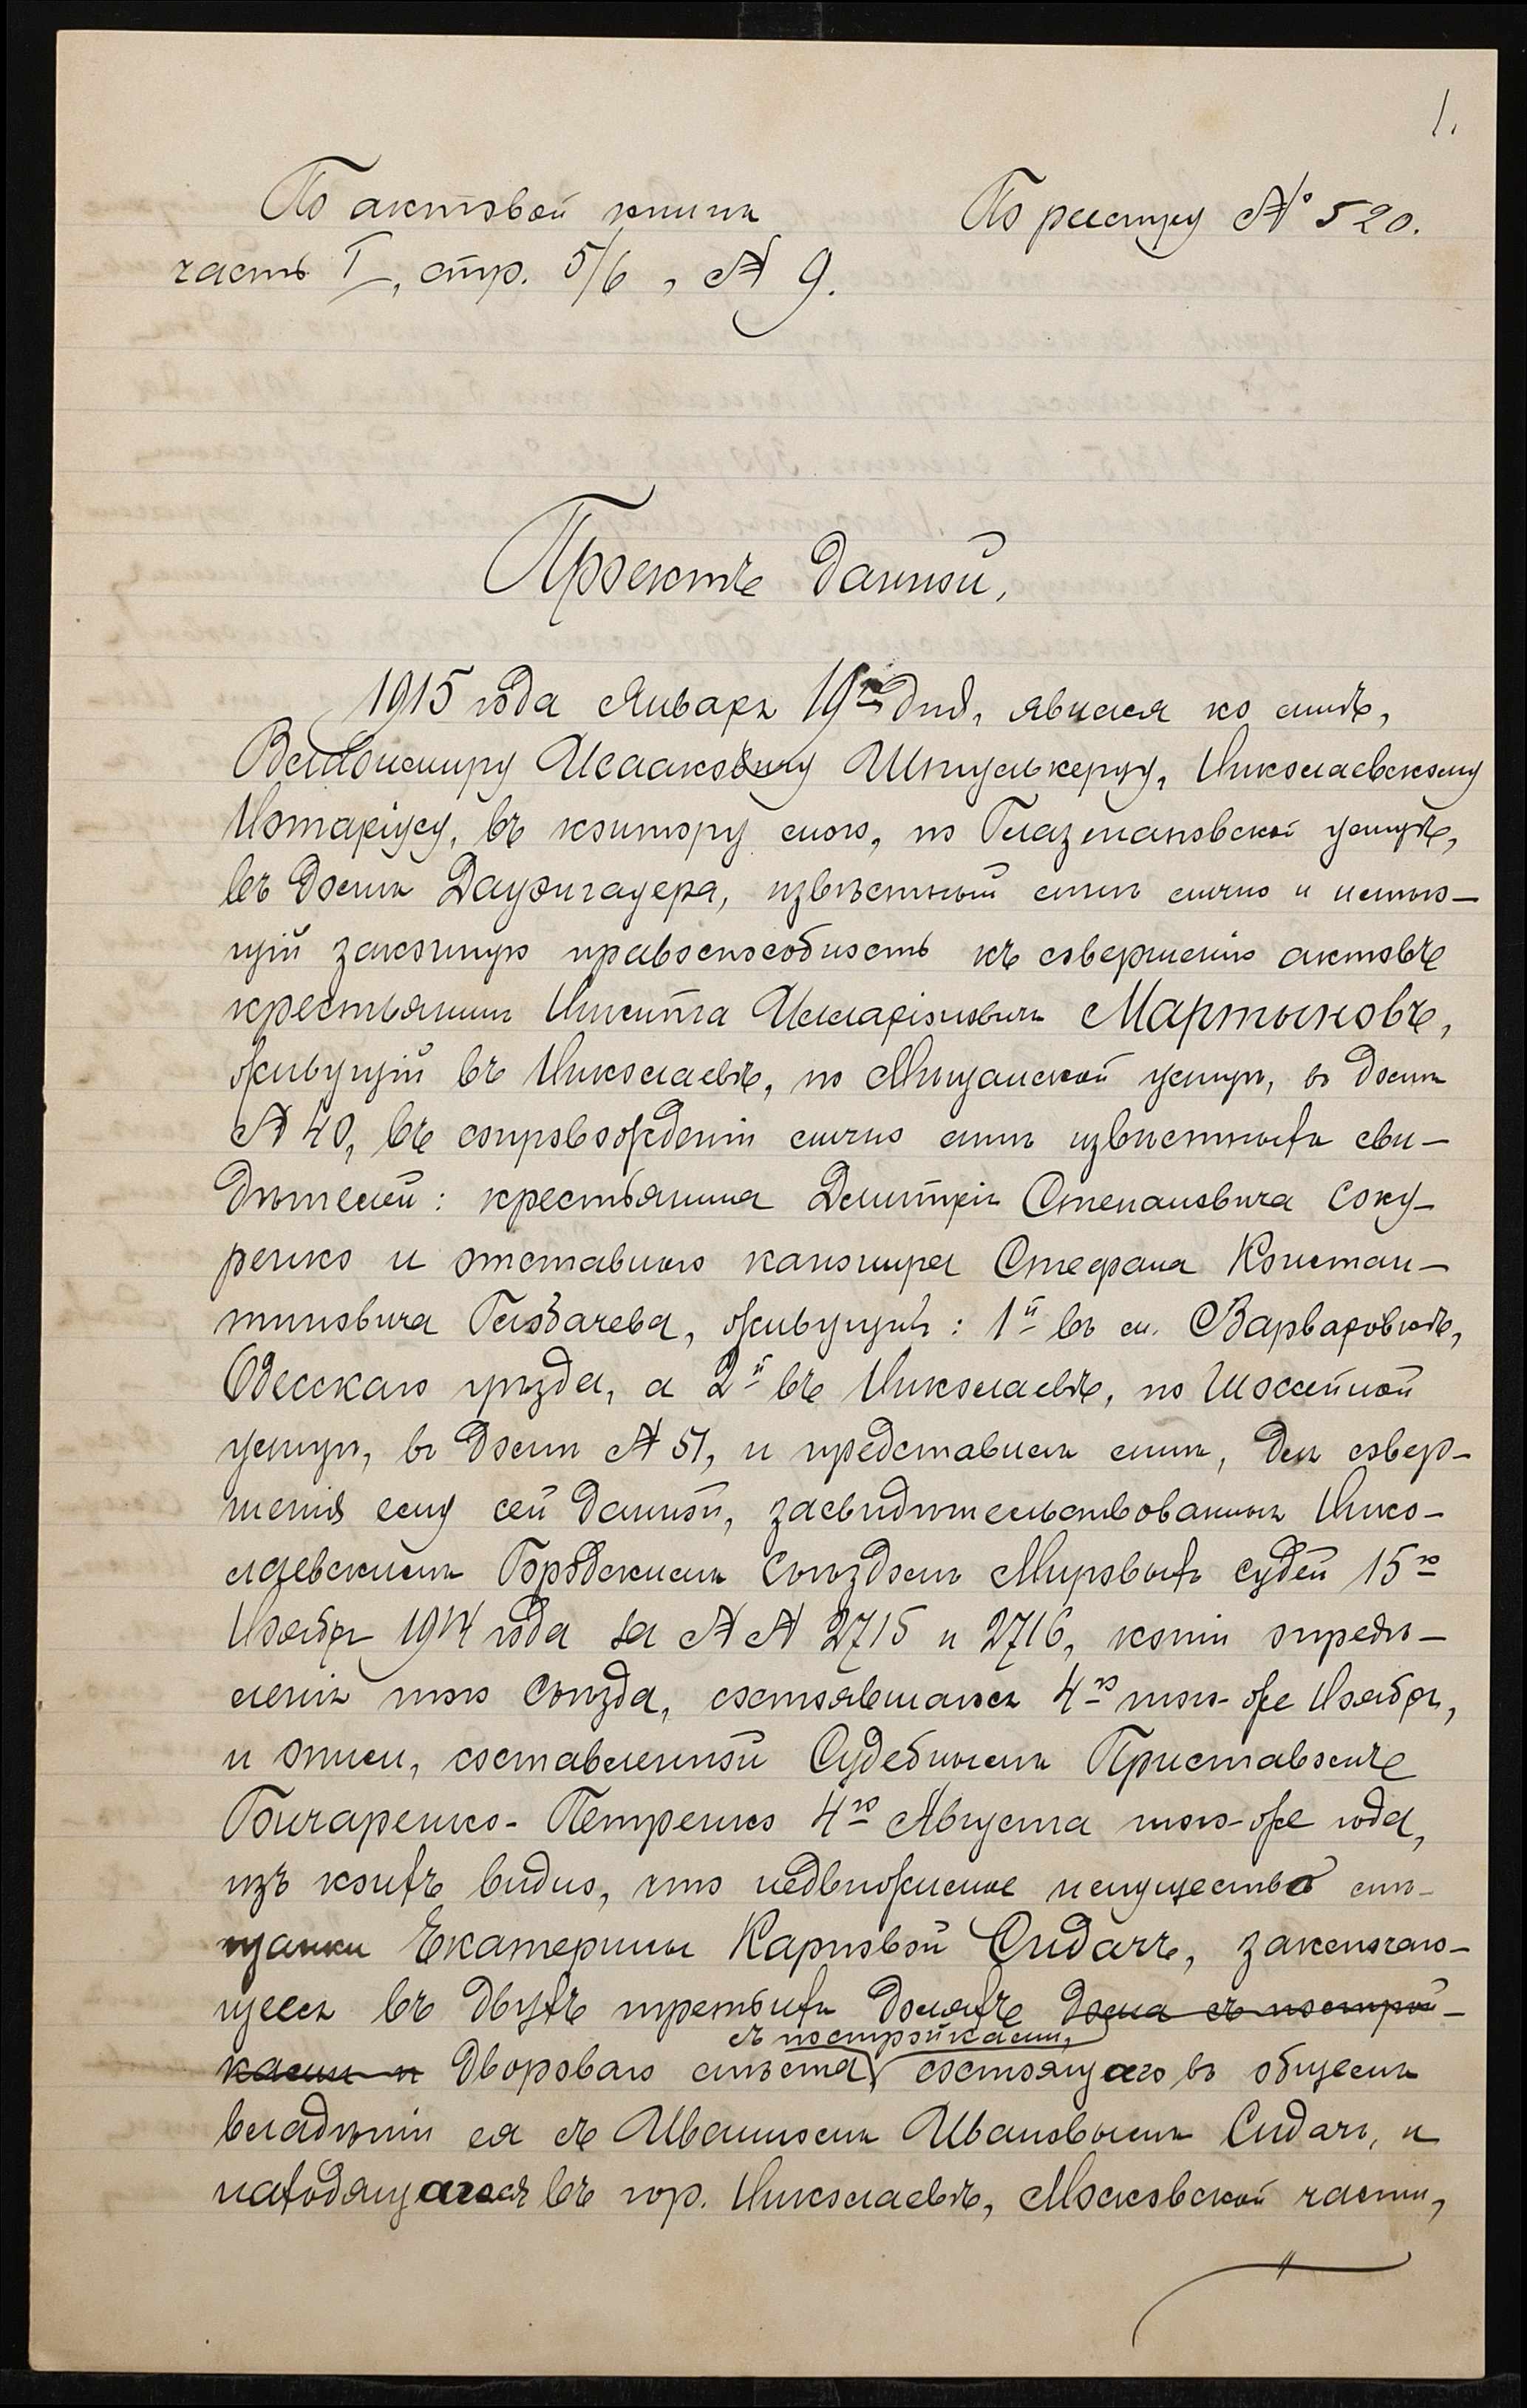 1.
По актовой книгѣ
По реестру № 520.
часть I, стр. 5/6, № 9.
Проектъ данной.
1915 года Января 19го дня, явился ко мнѣ,
Исааковичу Шпигелькеру, Николаевскому
Нотаріусу, въ контору мою, по Глазенаповской улицѣ,
въ домѣ Даунгауера, извѣстный мнѣ лично и имѣю-
щій законную правоспособность къ совершенію актовъ
крестьянинъ Никита Илларіоновичъ Мартыновъ,
живущій въ Николаевѣ, по Мѣщанской улицѣ, въ домѣ
№ 40, въ сопровожденіи лично мнѣ извѣстныхъ сви-
дѣтелей: крестьянина Дмитрія Степановича Соку-
ренко и отставного канонира Стефана Констан-
тиновича Гловачева, живущихъ: 1й въ м. Варваровкѣ,
Одесскаго уѣзда, а 2й въ Николаевѣ, по Шоссейной
улицѣ, въ домѣ № 51, и представилъ мнѣ, для совер-
шенія ему сей данной, засвидѣтельствованныя Нико-
лаевскимъ Городскимъ Съѣздомъ Мировыхъ Судей 15го
Ноября 1914 года за № № 2715 и 2716, копіи опредѣ-
ленія того Съѣзда, состоявшагося 4го того-же Ноября,
и описи, составленной Судебнымъ Приставомъ
Гончаренко-Петренко 4го Августа того-же года,
изъ коихъ видно, что недвижимое имущество мѣ-
щанки Екатерины Карповой Сидачъ, заключаю-
щееся въ двухъ третьихъ доляхъ дома съ построй-
съ постройками,
ками и дворового мѣста, состоящаго въ общемъ
владѣніи ея съ Иваномъ Ивановымъ Сидачъ, и
находящагося въ гор. Николаевѣ, Московской части,